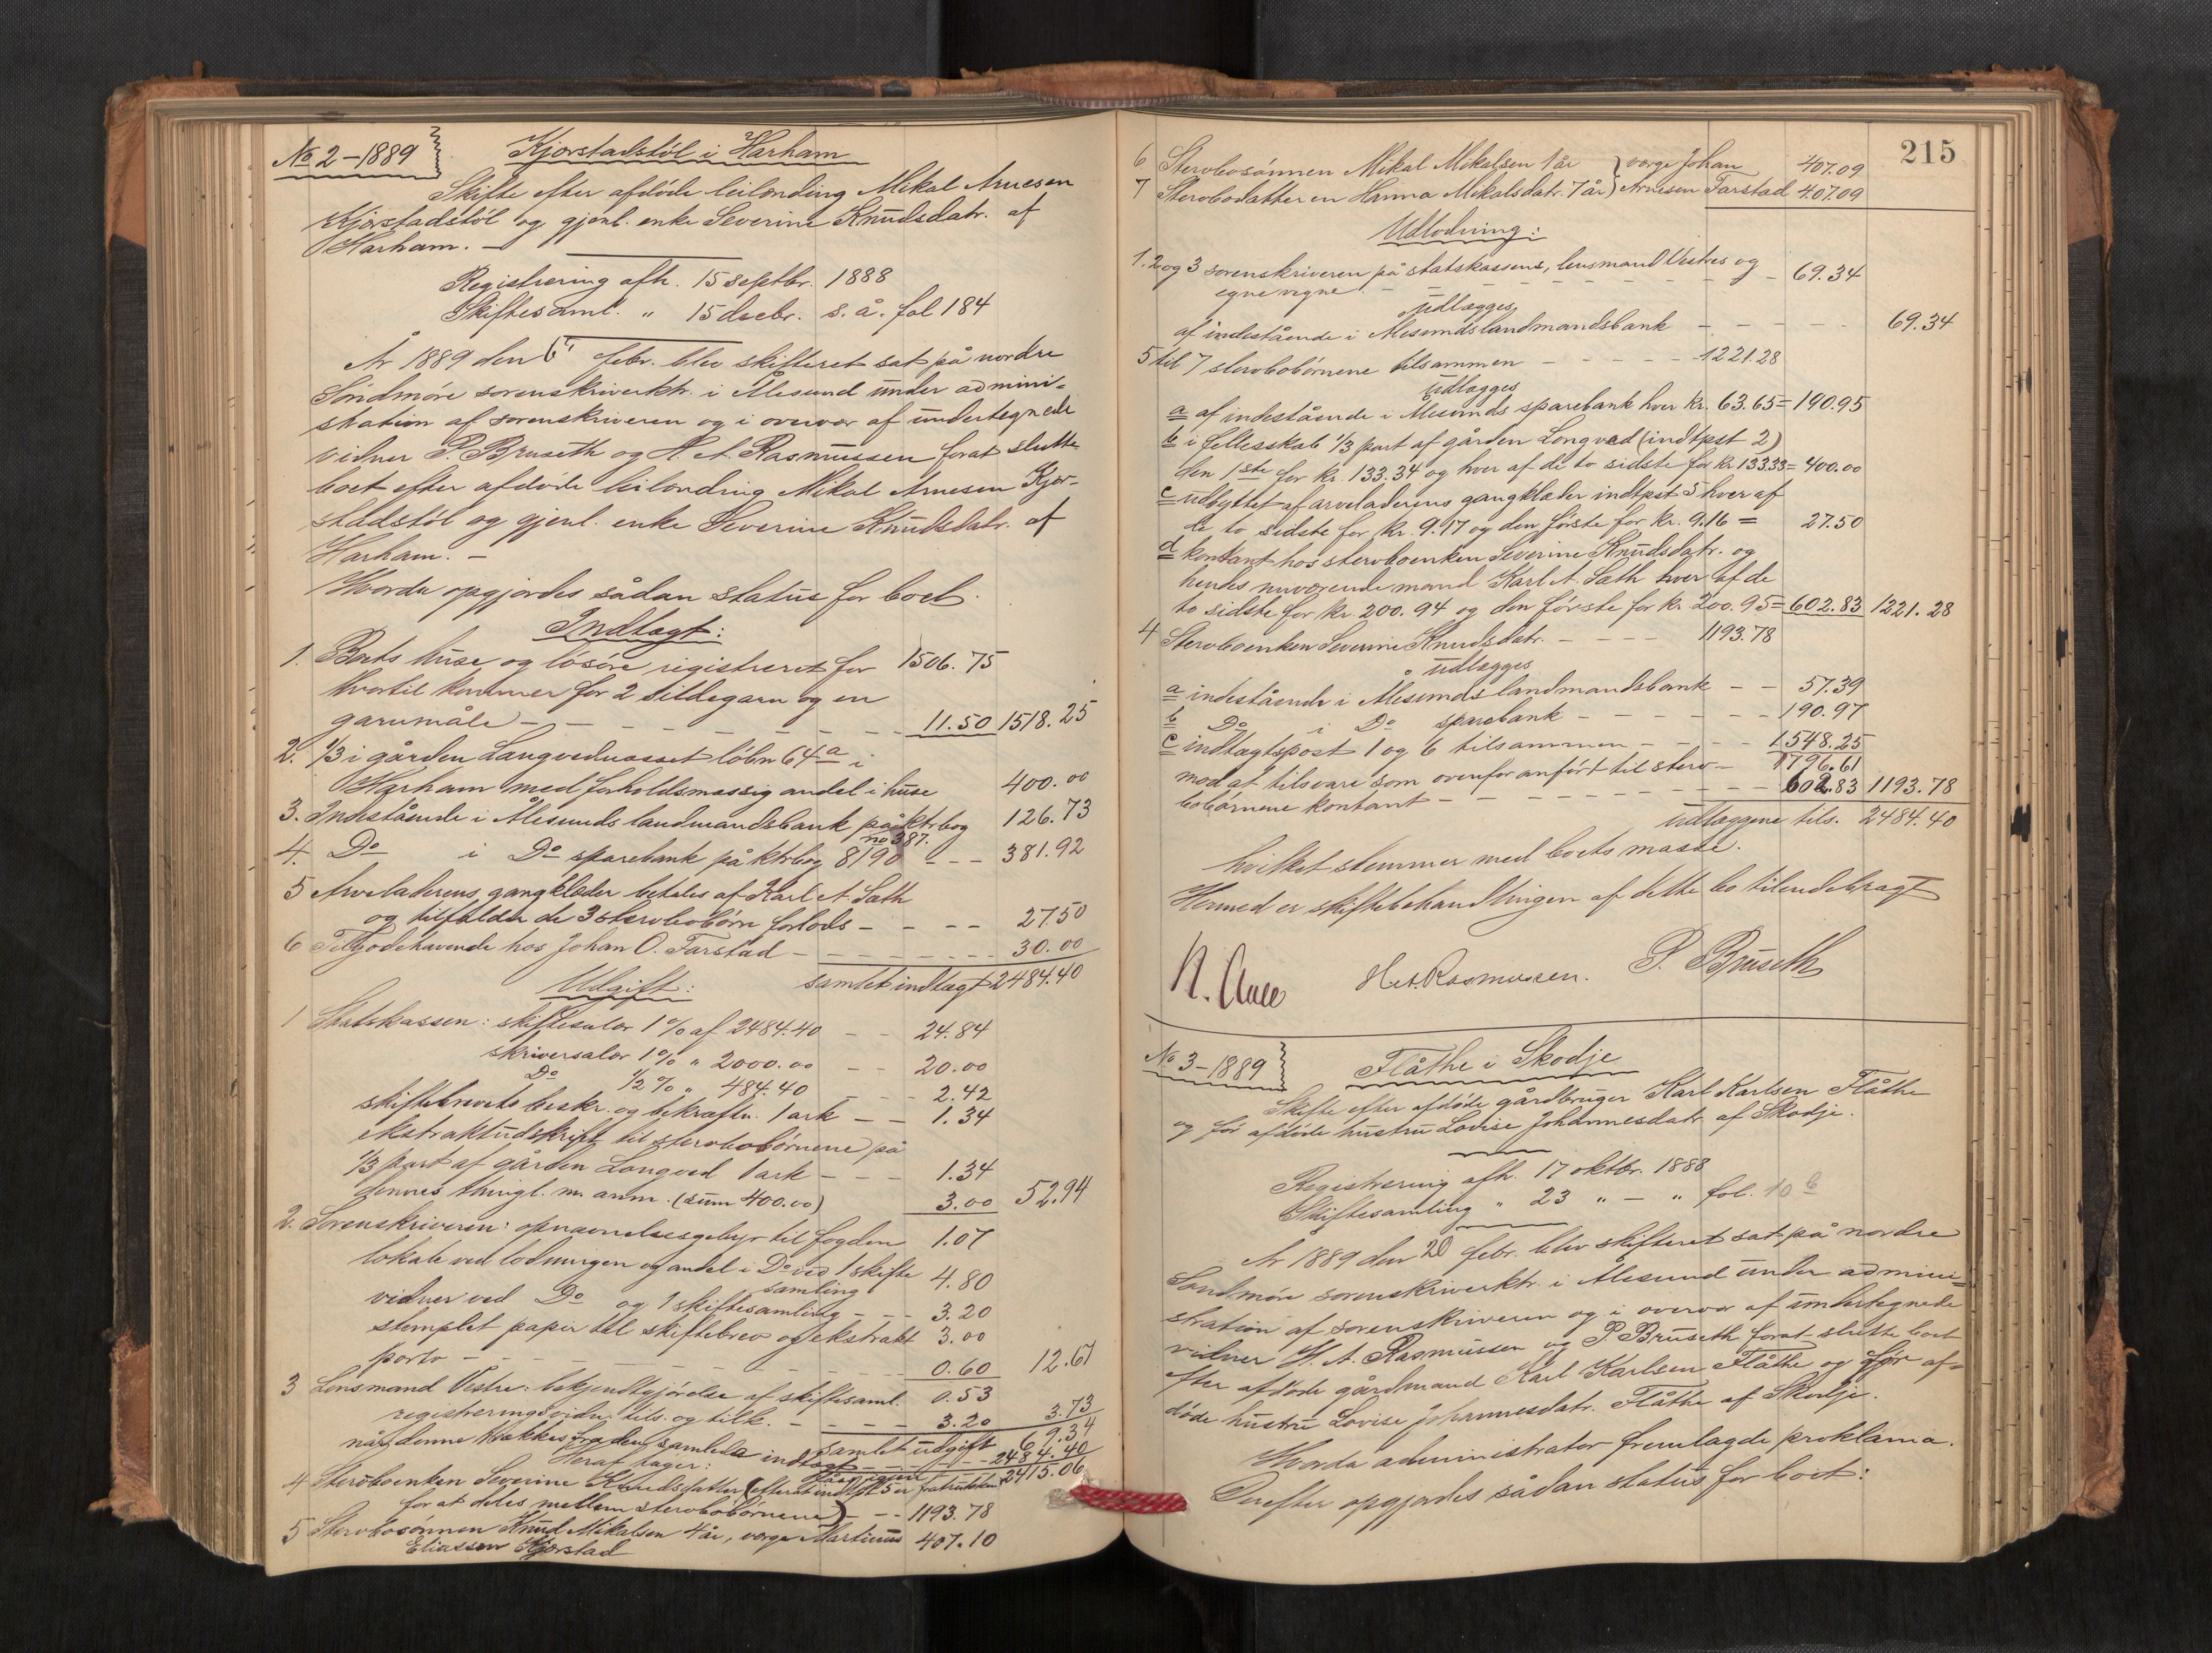 No 2-1889
Kjørstadstöl i Harham
Skifte efter afdöde leilænding Mikal Arnesen
Kjørstadstöl og gjenl. enke Severine Knudsdatr. af
Harham. -
Registrering afh. 15 septbr. 1888
Skiftesaml. " 15 decbr. s. å. fol 184
År 1889 den febr. blev skifteret sat på nordre
Söndmöre sorenskriverktr. i Ålesund under admini-
stration af sorenskriveren og i overvær af undertegnede
vidner P. Bruseth og H. A. Rasmussen forat slutte
boet efter afdöde leilænding Mikal Arnesen Kjør-
stadstöl og gjenl. enke Severine Knudsdatr. af
Harham. -
Hvorda opgjordes sådan status for boet.
Indtægt:
1. Boets huse og lösöre registreret for 1506.75
hvortil kommer for 2 sildegarn og en
garnmåle - - - 11.50 1518.25
2. 1/3 i gården Langvednæsset löbn 64a i
Harham med forholdsmæssig andel i huse 400.00
3. Indestående i Ålesunds landmandsbank på ktrbog 126.73
no 387.
4. Do i Do sparebank på ktrbog 8190 - - - 381.92
5 Arveladerens gangklæder betales af Karl A Sæth
og tilfalder de 3 stervbobörn forlods - - - - 27.50
6 Tilgodehavende hos Johan O. Farstad - - - 30.00
samlet indtægt 2484.40
Udgift:
1 Statskassen: skiftesalær 1% af 2484.40 - - 24.84
skriversalær 1% " 2000.00 - - 20.00
Do 1/2% " 484.40 - - - 2.42
skiftebrevets beskr. og bekræftn. 1 ark - - 1.34
ekstraktudskrift til stervbobörnene på
1/3 part af gården Langved 1 ark - - - 1.34
dennes thingl. m. anm. (sum 400.00) 3.00 52.94
2. Sorenskriveren: opnævnelsesgebyr til fogden 1.07
lokale ved lodningen og andel i Do ved 1 skifte
samling 4.80
vidner ved Do og 1 skiftesamling - - - 3.20
stemplet papir til skiftebrev og ekstrakt 3.00
porto - - - 0.60 12.67
3 Lensmand Vestre: bekjendtgjörelse af skiftesaml. 0.53
registreringsvidn. tils. og tilk. - - - - 3.20 3.73
samlet udgift 69.34
når denne trækkes fra den samlede indtægt - - - 2484.40
fåes igjen 2415.06
Heraf tager:
4 Stervboenken Severine Knudsdatter (efterat indtpst 5 er fratrukken
for at deles mellem stervbobörnene) - - - 1193.78
5 Stervbosönnen Knud Mikalsen 4 år, værge Martinus 407.10
Eliassen Kjørstad
215
6 Stervbosönnen Mikal Mikalsen 1 år } værge Johan 407.09
7 Stervbodatteren Hanna Mikalsdatr. 7 år } Arnesen Farstad 407.09
Udlodning:
1.2 og 3 sorenskriveren på statskassens, lensmand Vestres og
egne vegne - - - 69.34
udlægges
af indestående i Ålesunds landmandsbank - - - - - 69.34
5 til 7 stervbobörnene tilsammen - - - - - 1221.28
udlægges
a af indestående i Ålesunds sparebank hver kr. 63.65 = 190.95
b i fællesskab 1/3 part af gården Longved (indtpst 2)
den 1ste for kr. 133.34 og hver af de to sidste for kr 133.33 = 400.00
c udbyttet af arveladerens gangklæder indtpst 5 hver af
de to sidste for kr. 9.17 og den förste for kr. 9.16 = 27.50
d kontant hos stervboenken Severine Knudsdatr. og
hendes nuværende mand Karl A. Sæth hver af de
to sidste for kr. 200.94 og den förste for kr. 200.95 = 602.83 1221.28
4 Stervboenken Severine Knudsdatr. - - - - 1193.78
udlægges
a indestående i Ålesunds landmandsbank - - 57.39
b Do i Do sparebank - - - - - - 190.97
c indtægtspost 1 og 6 tilsammen - - - - 1548.25
1796.61
mod at tilsvare som ovenfor anfört til sterv-
bobörnene kontant - - - 602.83 1193.78
udlæggene tils. 2484.40
hvilket stemmer med boets masse.
Hermed er skiftebehandlingen af dette bo tilendebragt
N. Aall H. A. Rasmussen. P. Bruseth
No 3-1889
Flåthe i Skodje
Skifte efter afdöde gårdbruger Karl Karlsen Flåthe
og för afdöde hustru Lovise Johannesdatr af Skodje.
Registrering afh. 17 oktbr. 1888
Skiftesamling " 23 " - " fol. 10 b
År 1889 den 20 febr. blev skifteret sat på nordre
Söndmöre sorenskriverktr. i Ålesund under admini-
stration af sorenskriveren og i overvær af undertegnede
vidner H. A. Rasmussen og P. Bruseth forat slutte boet
efter afdöde gårdmand Karl Karlsen Flåthe og för af-
döde hustru Lovise Johannesdatr. Flåthe af Skodje.
Hvorda administrator fremlagde proklama.
Derefter opgjordes sådan status for boet: